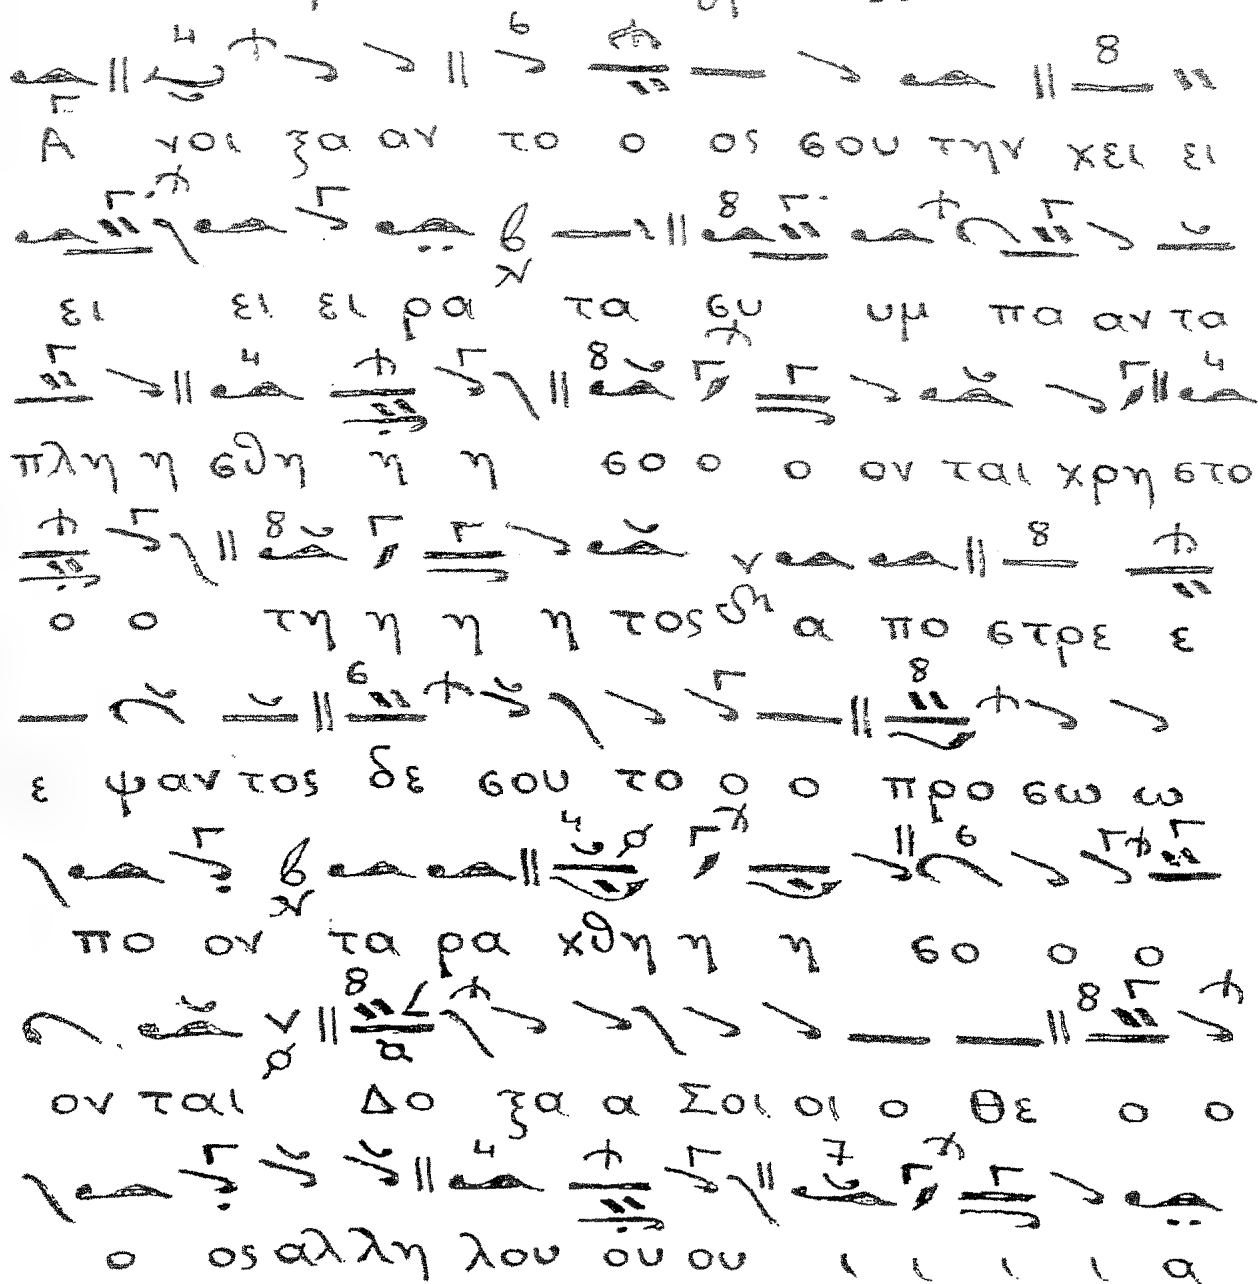 Α νοι ξα αν το ο ος σου την χει ει
ει ει ει ρα τα συ υμ πα αν τα
πλη η σθη η η σο ο ο ο ον ται χρη στο
ο ο τη η η η τος α πο στρε ε
ε ψαν τος δε σου το ο ο προ σω ω
πο ον τα ρα χθη η η σο ο ο
ον ται Δο ξα α Σοι οι ο Θε ο ο
ο ος αλ λη λου ου ου ι ι ι ι α